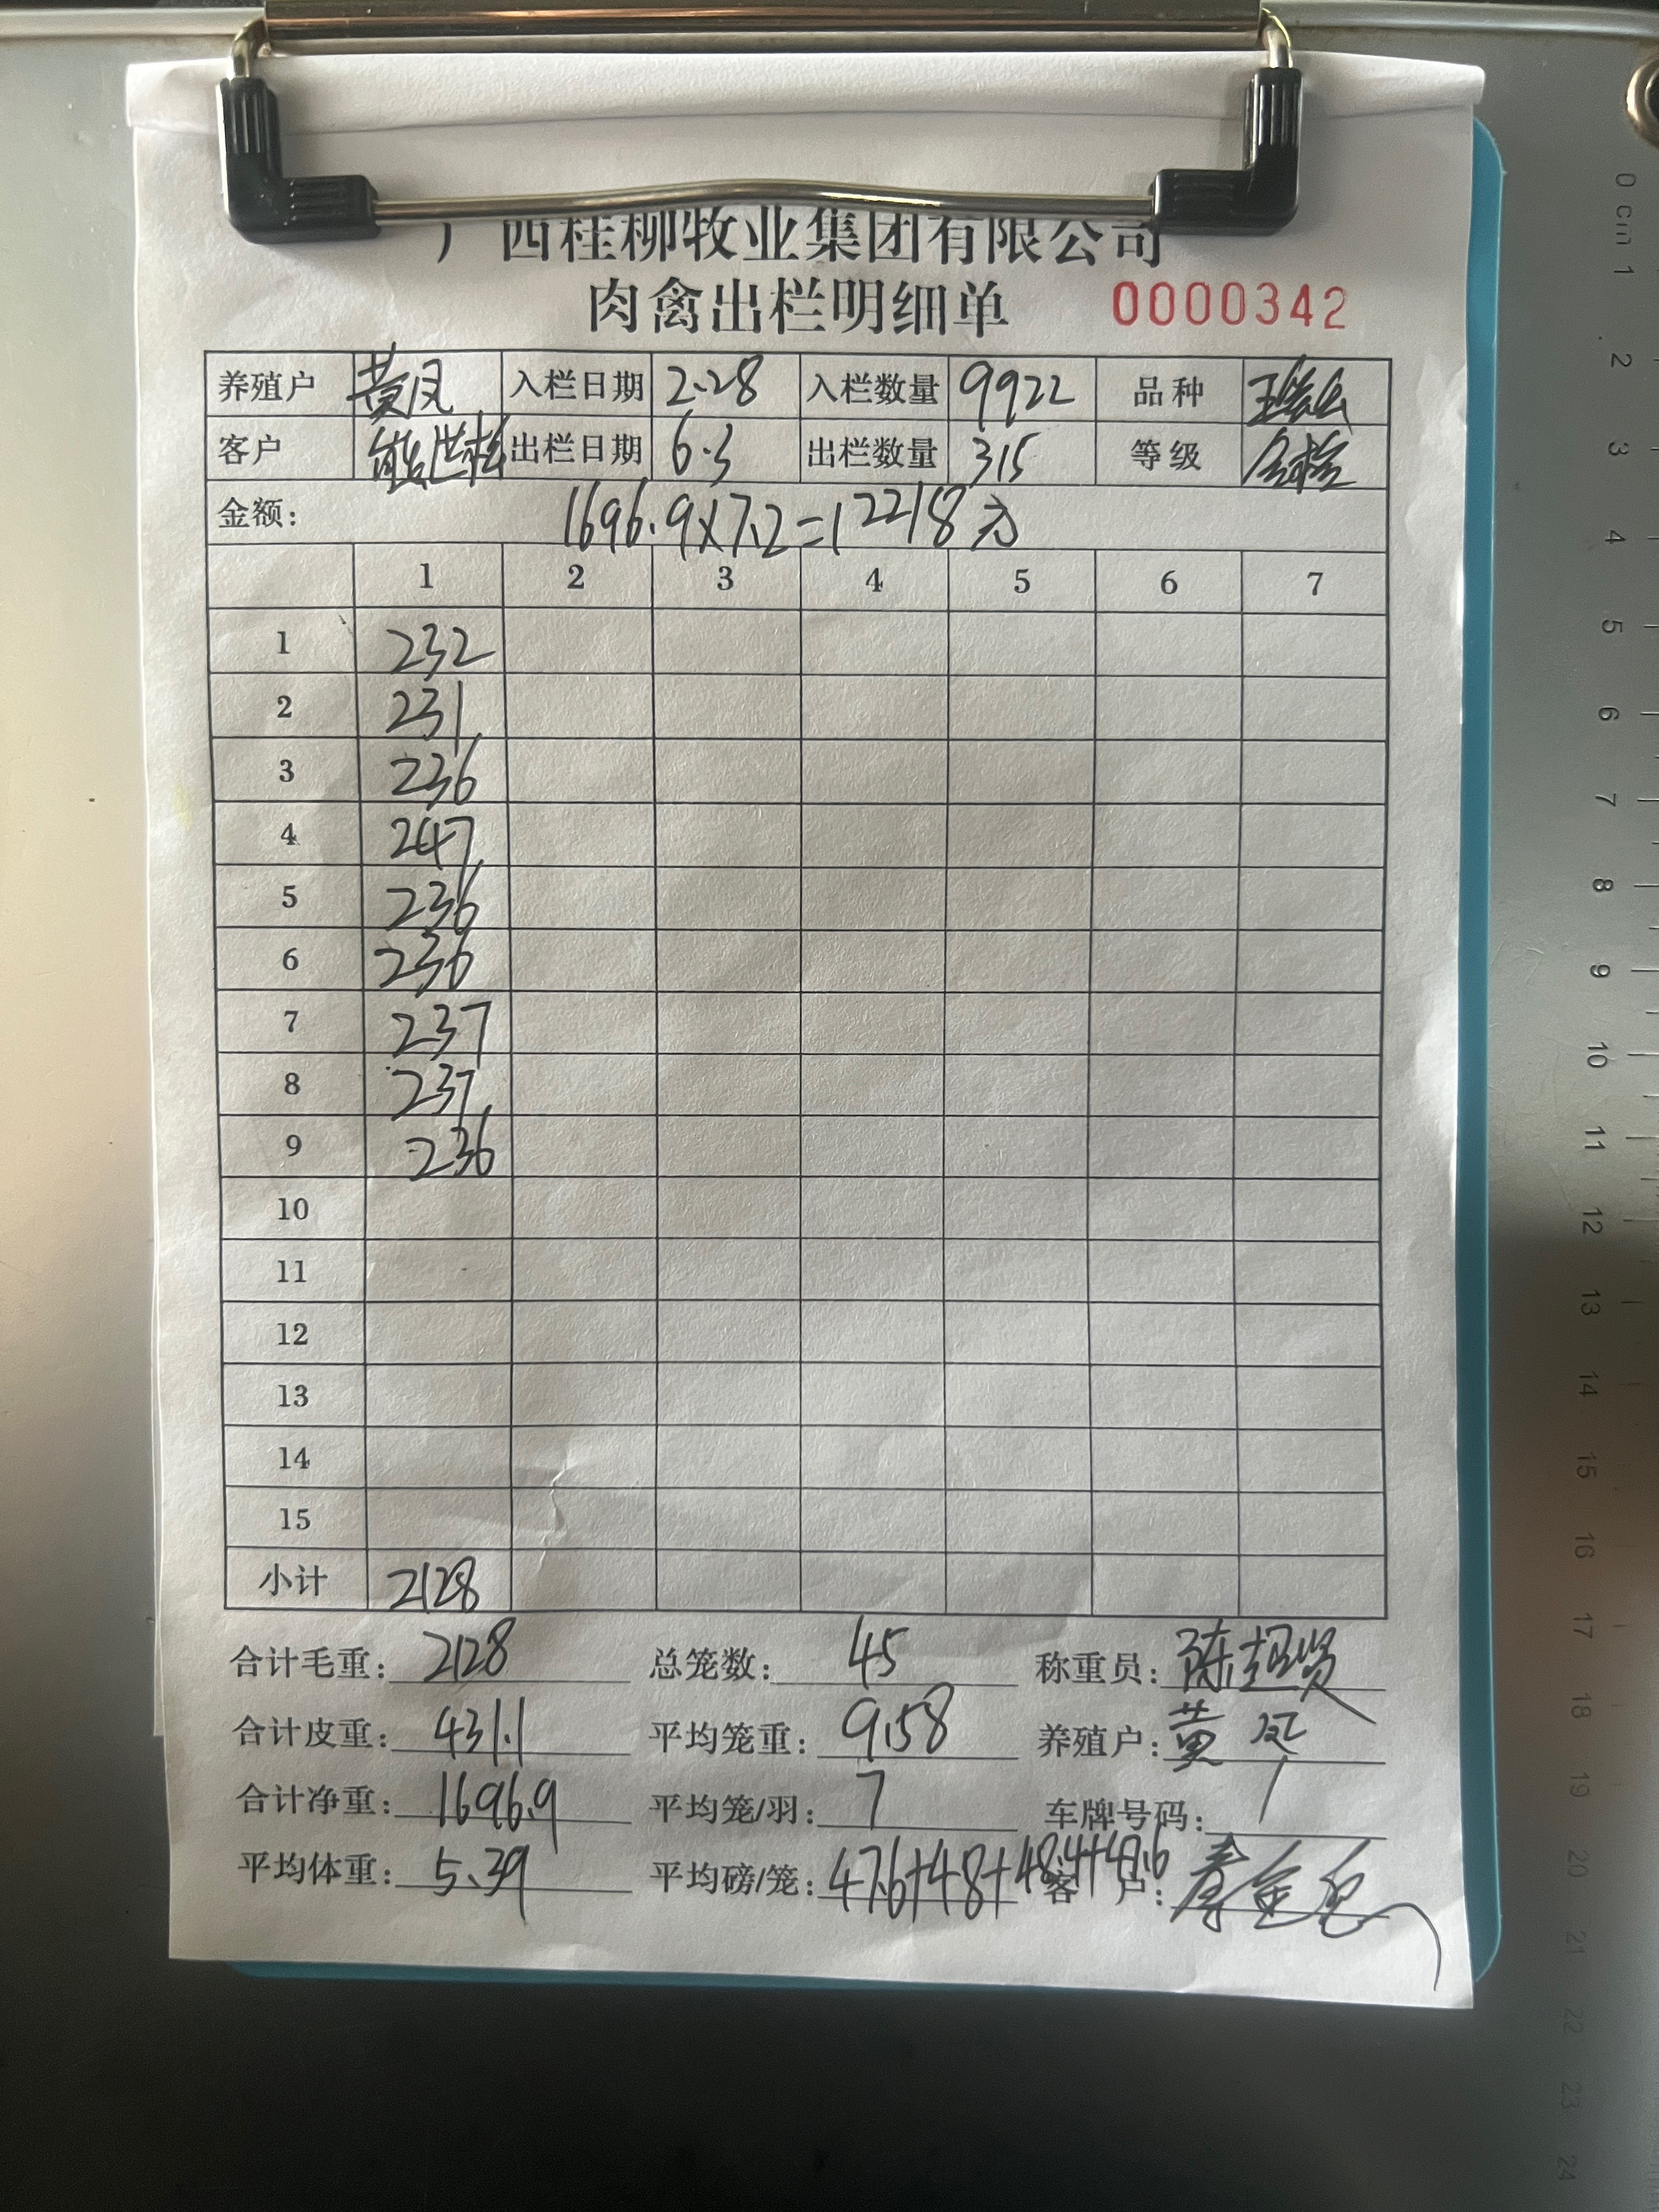 广西桂柳牧业集团有限公司
肉禽出栏明细单 0000342
养殖户 黄凤 入栏日期 2.28 入栏数量 9922 品种
客户 熊世松 出栏日期 6.3 出栏数量 315 等级
金额: 1696.9×7.2=12218元
1 2 3 4 5 6 7
1 232
2 231
3 236
4 247
5 236
6 236
7 237
8 237
9 236
10
11
12
13
14
15
小计 2128
合计毛重: 2128 总笼数: 45 称重员: 陈超贤
合计皮重: 431.1 平均笼重: 9.58 养殖户: 黄凤
合计净重: 1696.9 平均笼/羽: 7 车牌号码: /
平均体重: 5.39 平均磅/笼: 47.6+48+48.4+47.6 客户:
0 cm 1
2
3
4
5
6
7
8
9
10
11
12
13
14
15
16
17
18
19
20
21
22
23
24